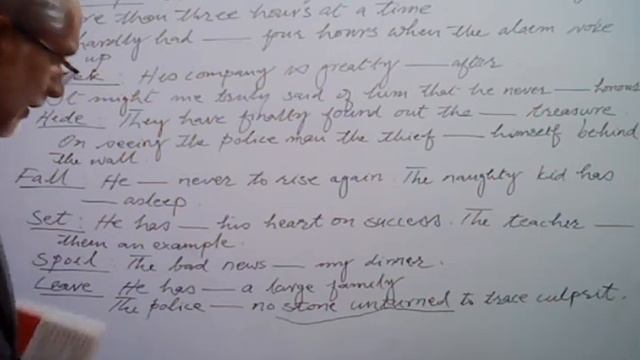 than three hours at a time
hardly had — four hours when the alarm woke
up
His company is greatly — after
It might me truly said of him that he never — honours
Hide: They have finally found out the — treasure
On seeing the police man the thief — himself behind
the wall
Fall He — never to rise again. The naughty kid has
— asleep.
Set: He has — his heart on success. The teacher —
them an example.
Spoil: The bad news — my dinner.
Leave He has — a large family
The police — no stone unturned to trace culprit.